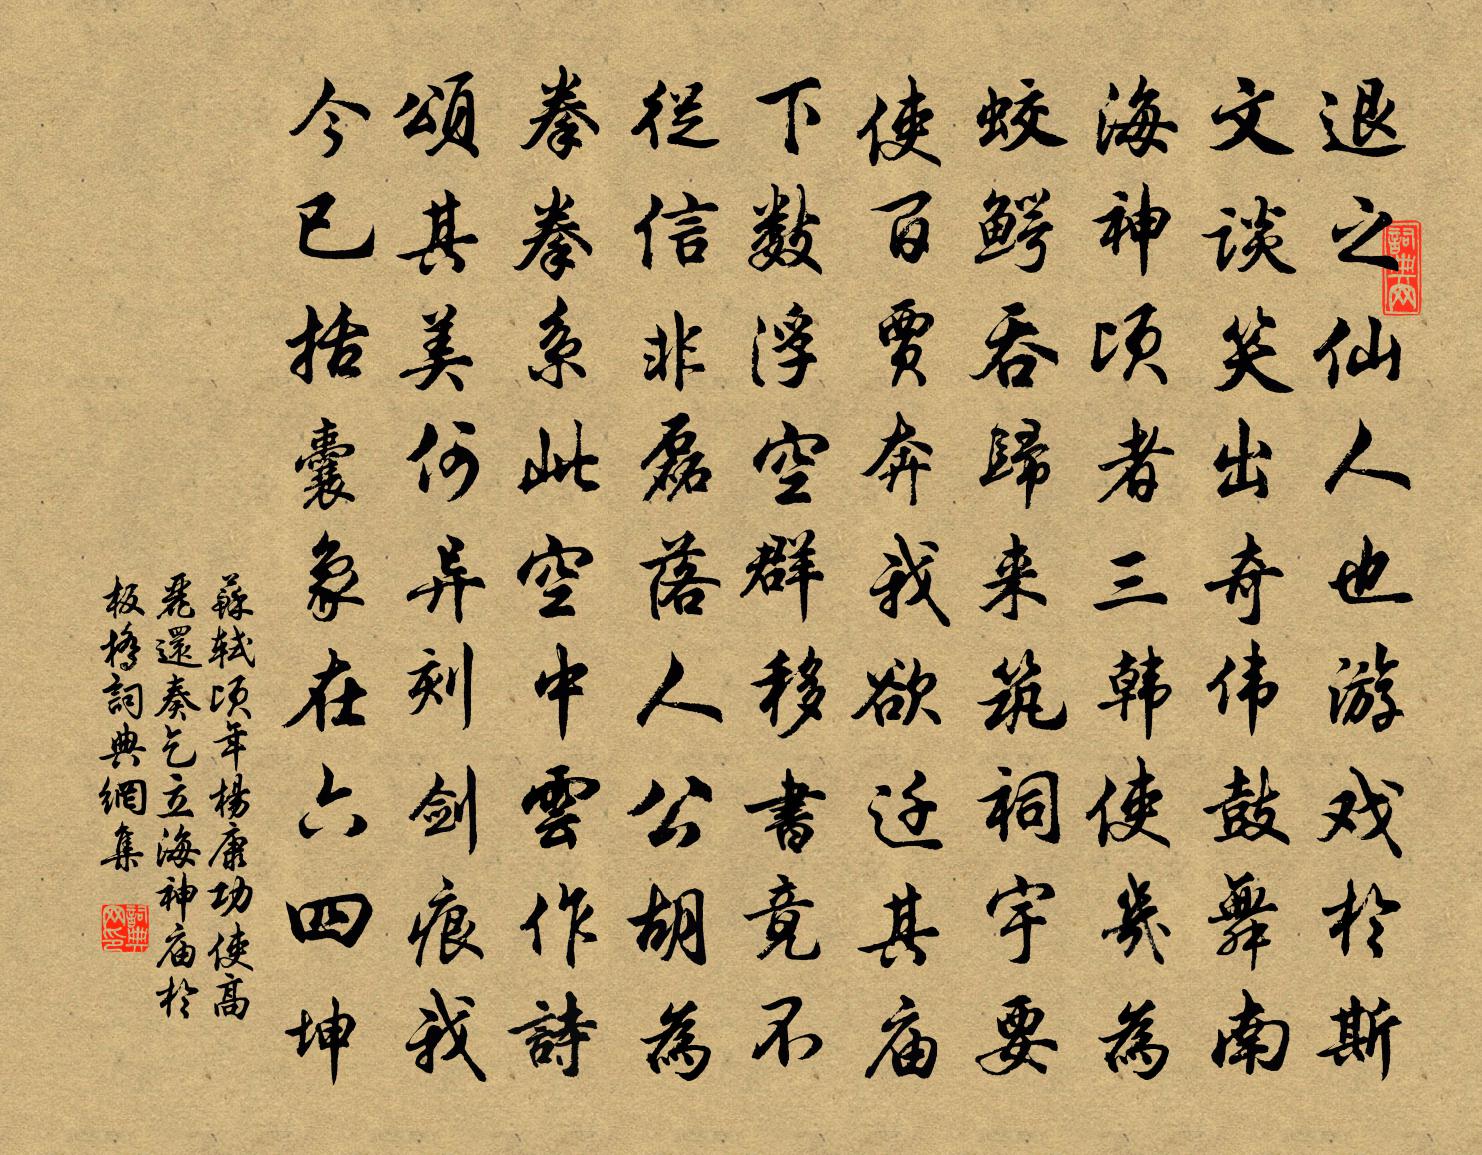 退之仙人也游戏於斯
文谈笑出奇伟鼓舞南
海神顷者三韩使幾為
蛟鳄吞歸来筑祠宇要
使百贾奔我欲迁其庙
下数浮空群移書竟不
從信非磊落人公胡為
拳拳系此空中雲作詩
頌其美何异刻剑痕我
今已括囊象在六四坤
蘇轼顷年楊康功使高
麗還奏乞立海神庙於
板橋詞典網集
詞典网
詞典网印